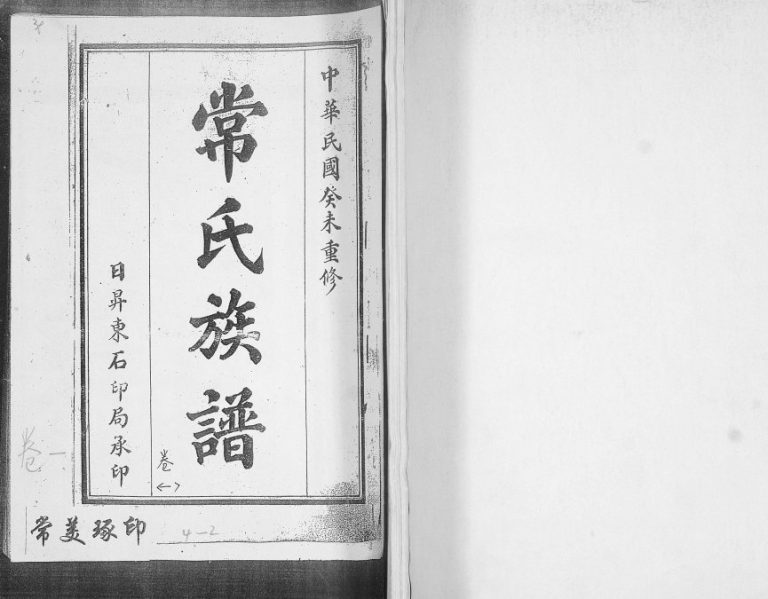 中華民國癸未重修
常氏族譜
卷
<一>
日昇東石印局承印
卷一
常美琢印
4-2